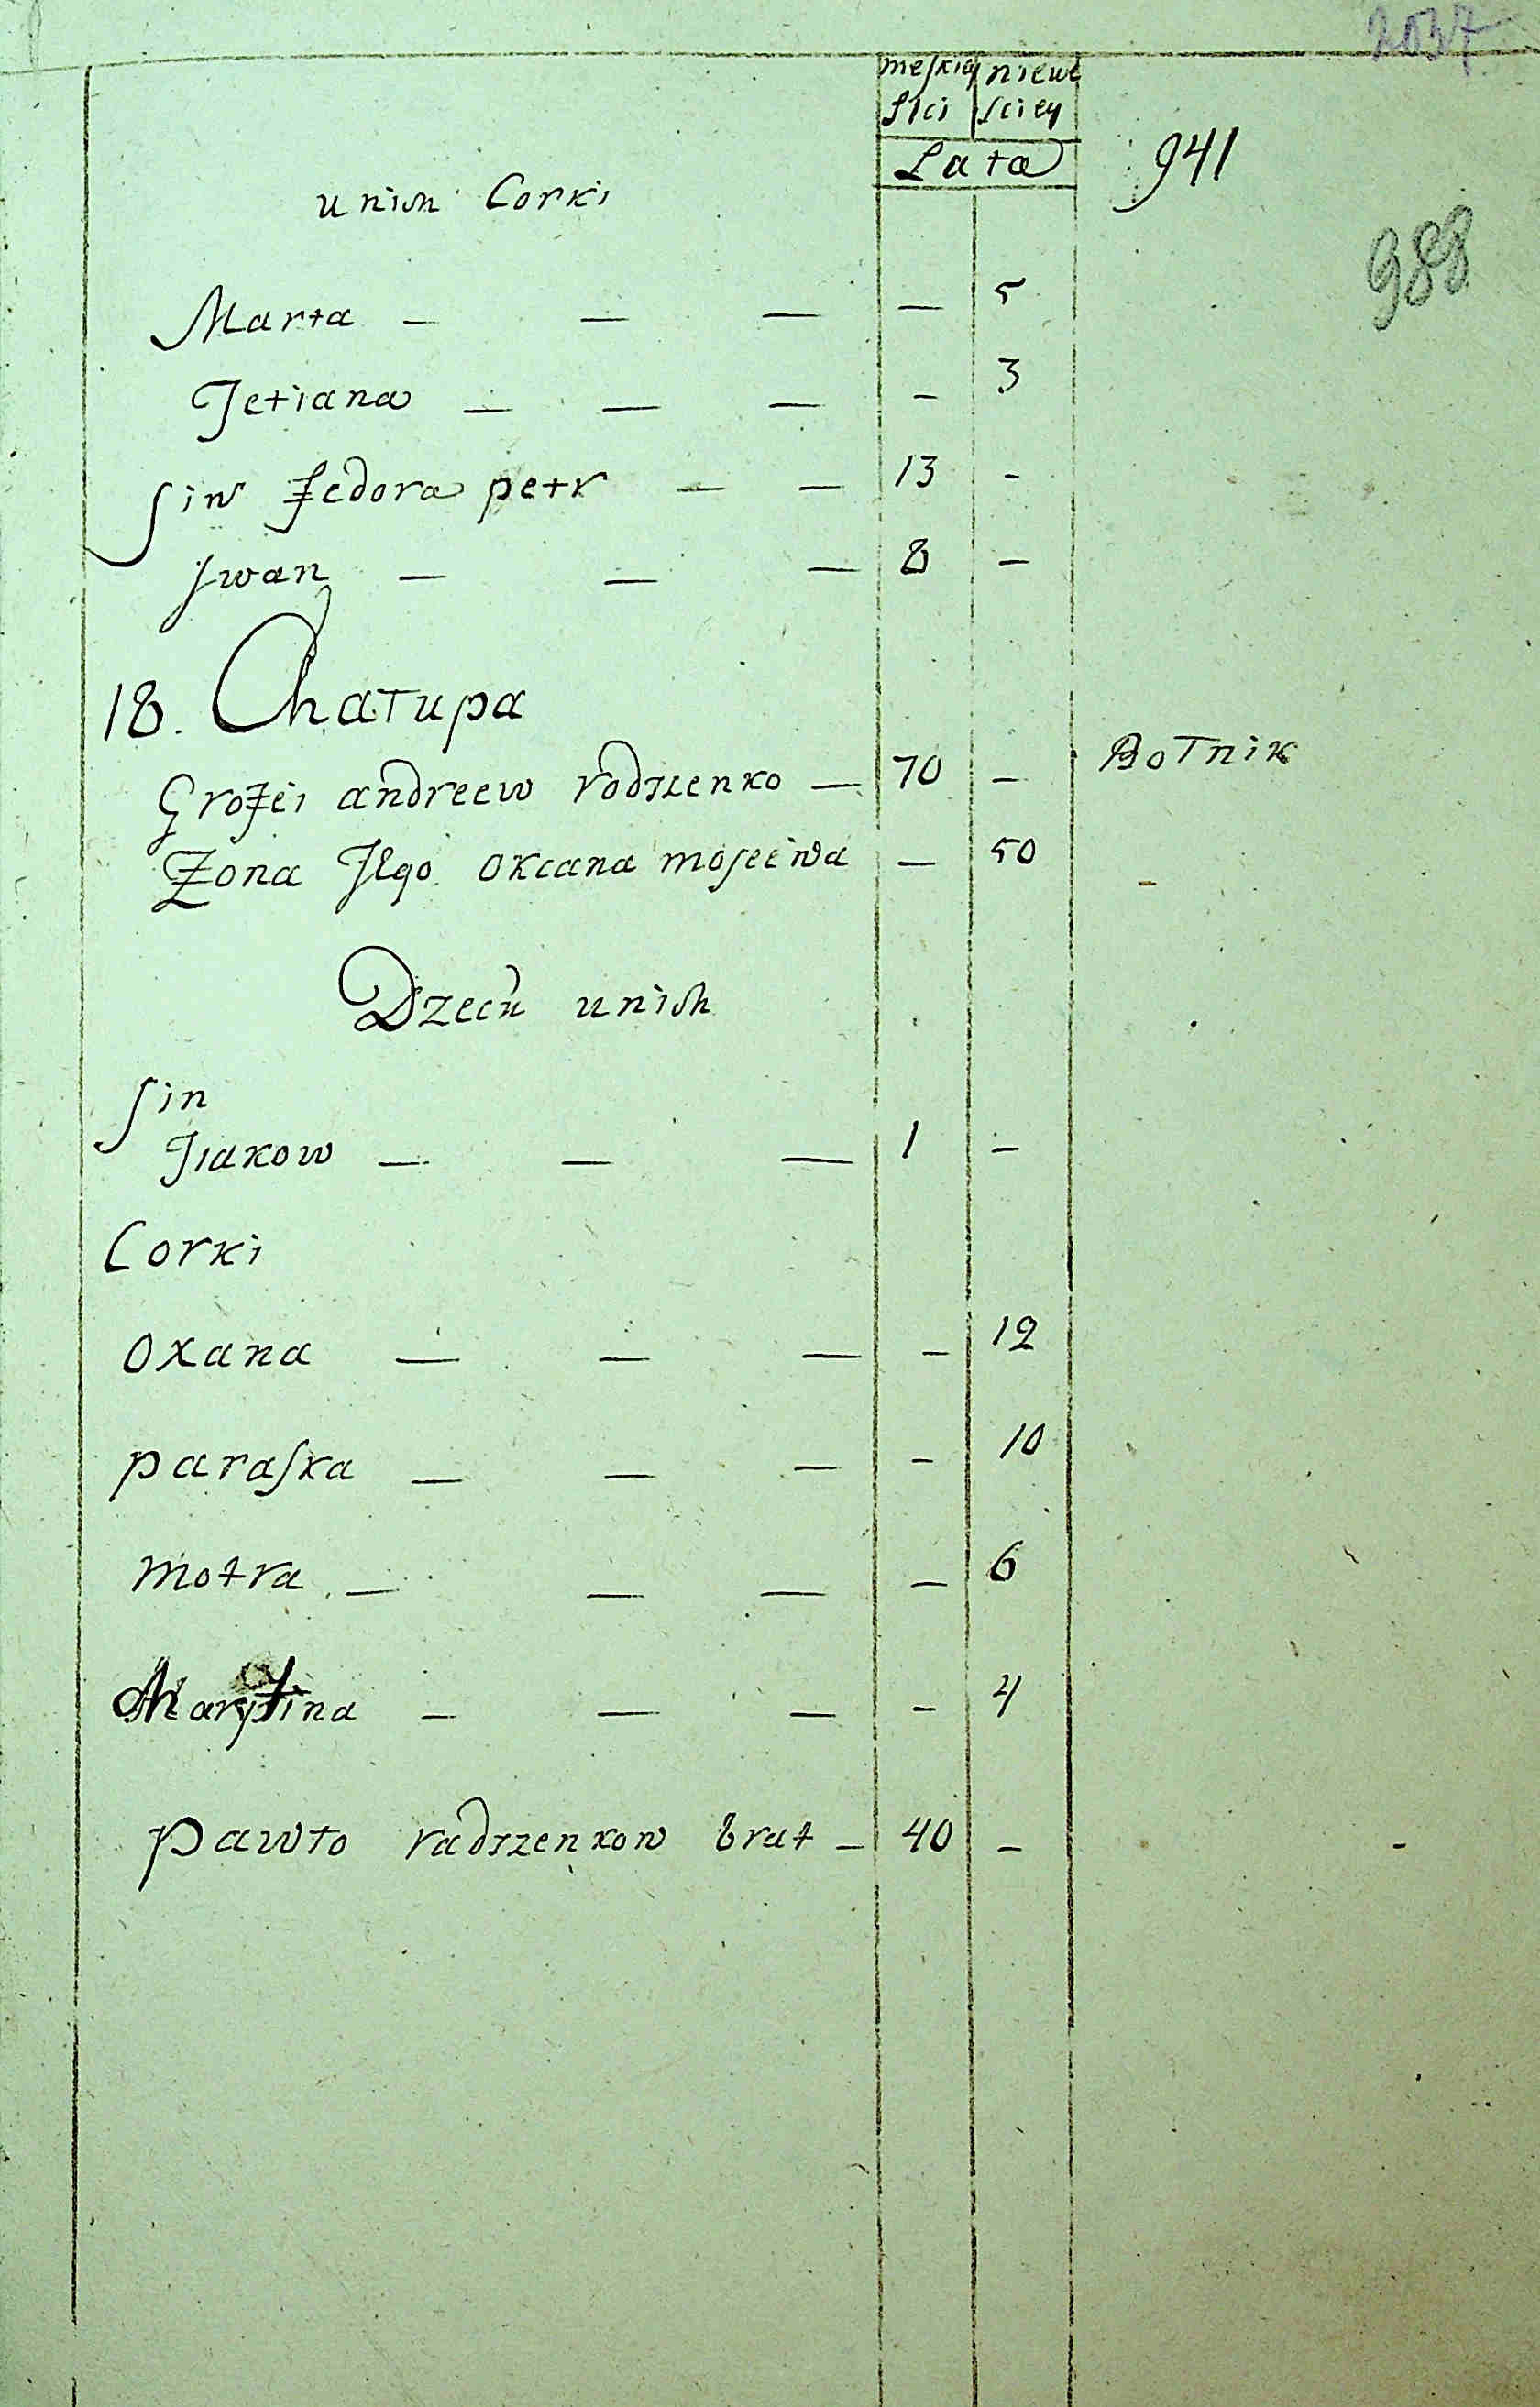 2037
meſkiey niewe
ſtci ſciey
Lata
941
988
u nich Corki
Marta — — — — 5
Jetiana — — — — 3
ſin Fedora petr — — 13 -
Jwan — — — 8 —
18. Chatupa
Grofei andreew rodzienko — 70 — Botnik
Zona Jego okcana moſeewa — 50
Dzecii u nich
ſin
Jiakow — — — 1 —
Corki
oxana — — — - 12
paraſka — — — - 10
motra — — — — 6
Martina — — — - 4
pawto radzzenkow brat — 40 —